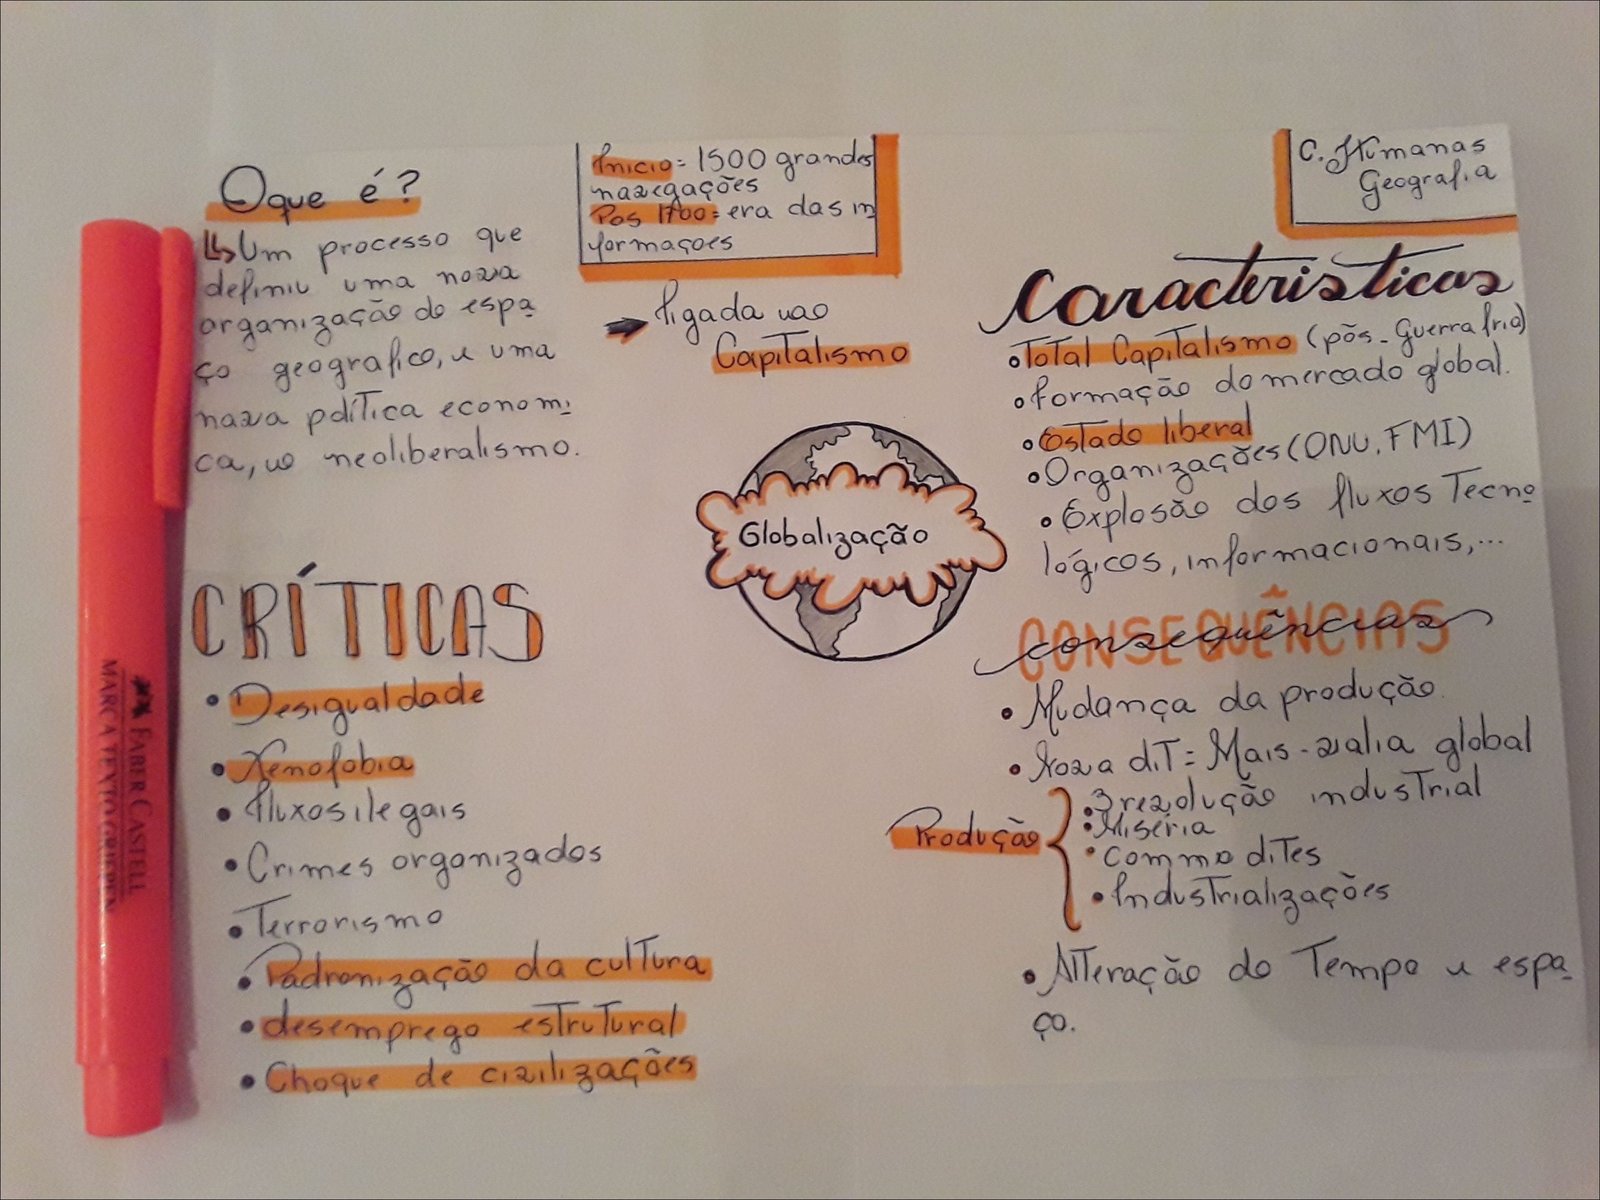 Oque é?
Um processo que
definiu uma nova
organização do espa-
ço geografico, e uma
nova política economi-
ca, o neoliberalismo.
Início = 1500 grandes
navegações
Pos 1700 = era das in
formaçoes
ligada ao
Capitalismo
C. Humanas
Geografia
Características
Total Capitalismo (pós-Guerra fria)
formação do mercado global.
Estado liberal
Organizações (ONU, FMI)
Explosão dos fluxos Tecno
lógicos, informacionais,...
Globalização
CRÍTICAS
Desigualdade
Xenofobia
fluxos ilegais
Crimes organizados
Terrorismo
Padronização da cultura
desemprego estrutural
Choque de civilizações
CONSEQUÊNCIAS
consequências
Mudança da produção.
Nova dit = Mais-valia global
Produção
3 revolução industrial
Miséria
commodites
Industrializações
Alteração do Tempo e espa-
ço.
FABER CASTELL
MARCA TEXTO GRIFPEN